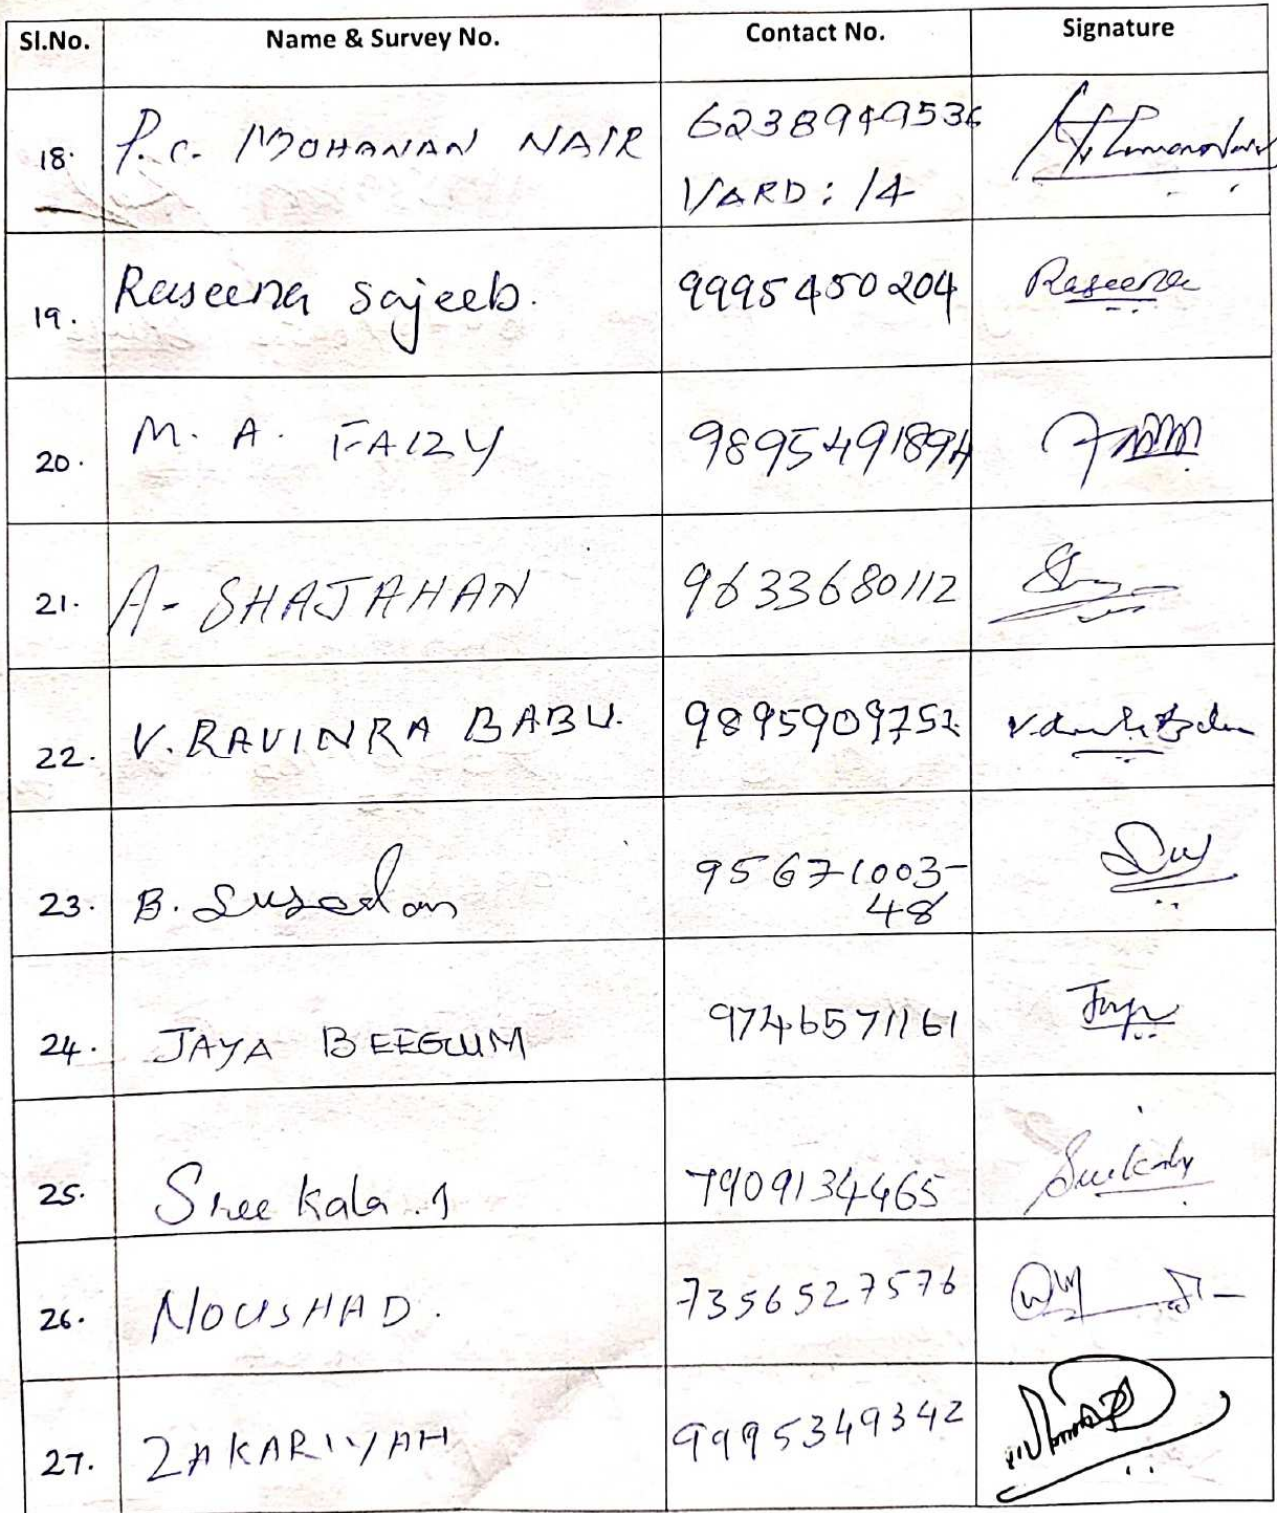 Sl.No. Name & Survey No. Contact No. Signature
18. P.C. MOHANAN NAIR 6238949536
VARD: 14
19. Raseena Sajeeb. 9995450204 Raseena
20. M. A. FAIZY 9895491894
21. A- SHAJAHAN 9633680112
22. V. RAVINRA BABU. 9895909752
23. B. 95671003-
48
24. JAYA BEEGUM 9746571161 Jaya
25. Sree kala. 7909134465 Sreekala
26. NOUSHAD. 7356527576
27. ZAKARIYAH 9995349342